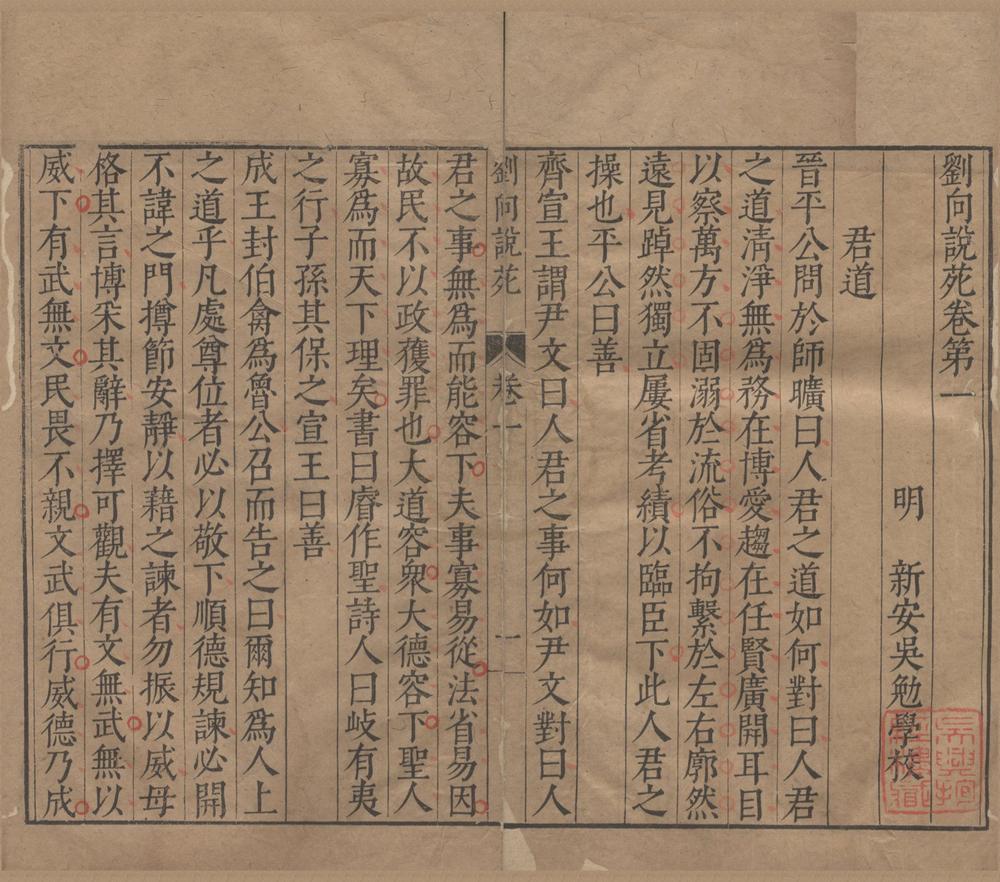 劉向說苑卷第一
明　新安吳勉學校
君道
晉平公問於師曠曰人君之道如何對曰人君
之道清淨無為務在博愛趨在任賢廣開耳目
以察萬方不固溺於流俗不拘繫於左右廓然
遠見踔然獨立屢省考績以臨臣下此人君之
操也平公曰善
齊宣王謂尹文曰人君之事何如尹文對曰人
劉向說苑　卷一　一
君之事無爲而能容下夫事寡易從法省易因
故民不以政獲罪也大道容衆大德容下聖人
寡爲而天下理矣書曰睿作聖詩人曰岐有夷
之行子孫其保之宣王曰善
成王封伯禽爲魯公召而告之曰爾知爲人上
之道乎凡處尊位者必以敬下順德規諫必開
不諱之門撙節安靜以藉之諫者勿振以威毋
格其言博采其辭乃擇可觀夫有文無武無以
威下有武無文民畏不親文武俱行威德乃成